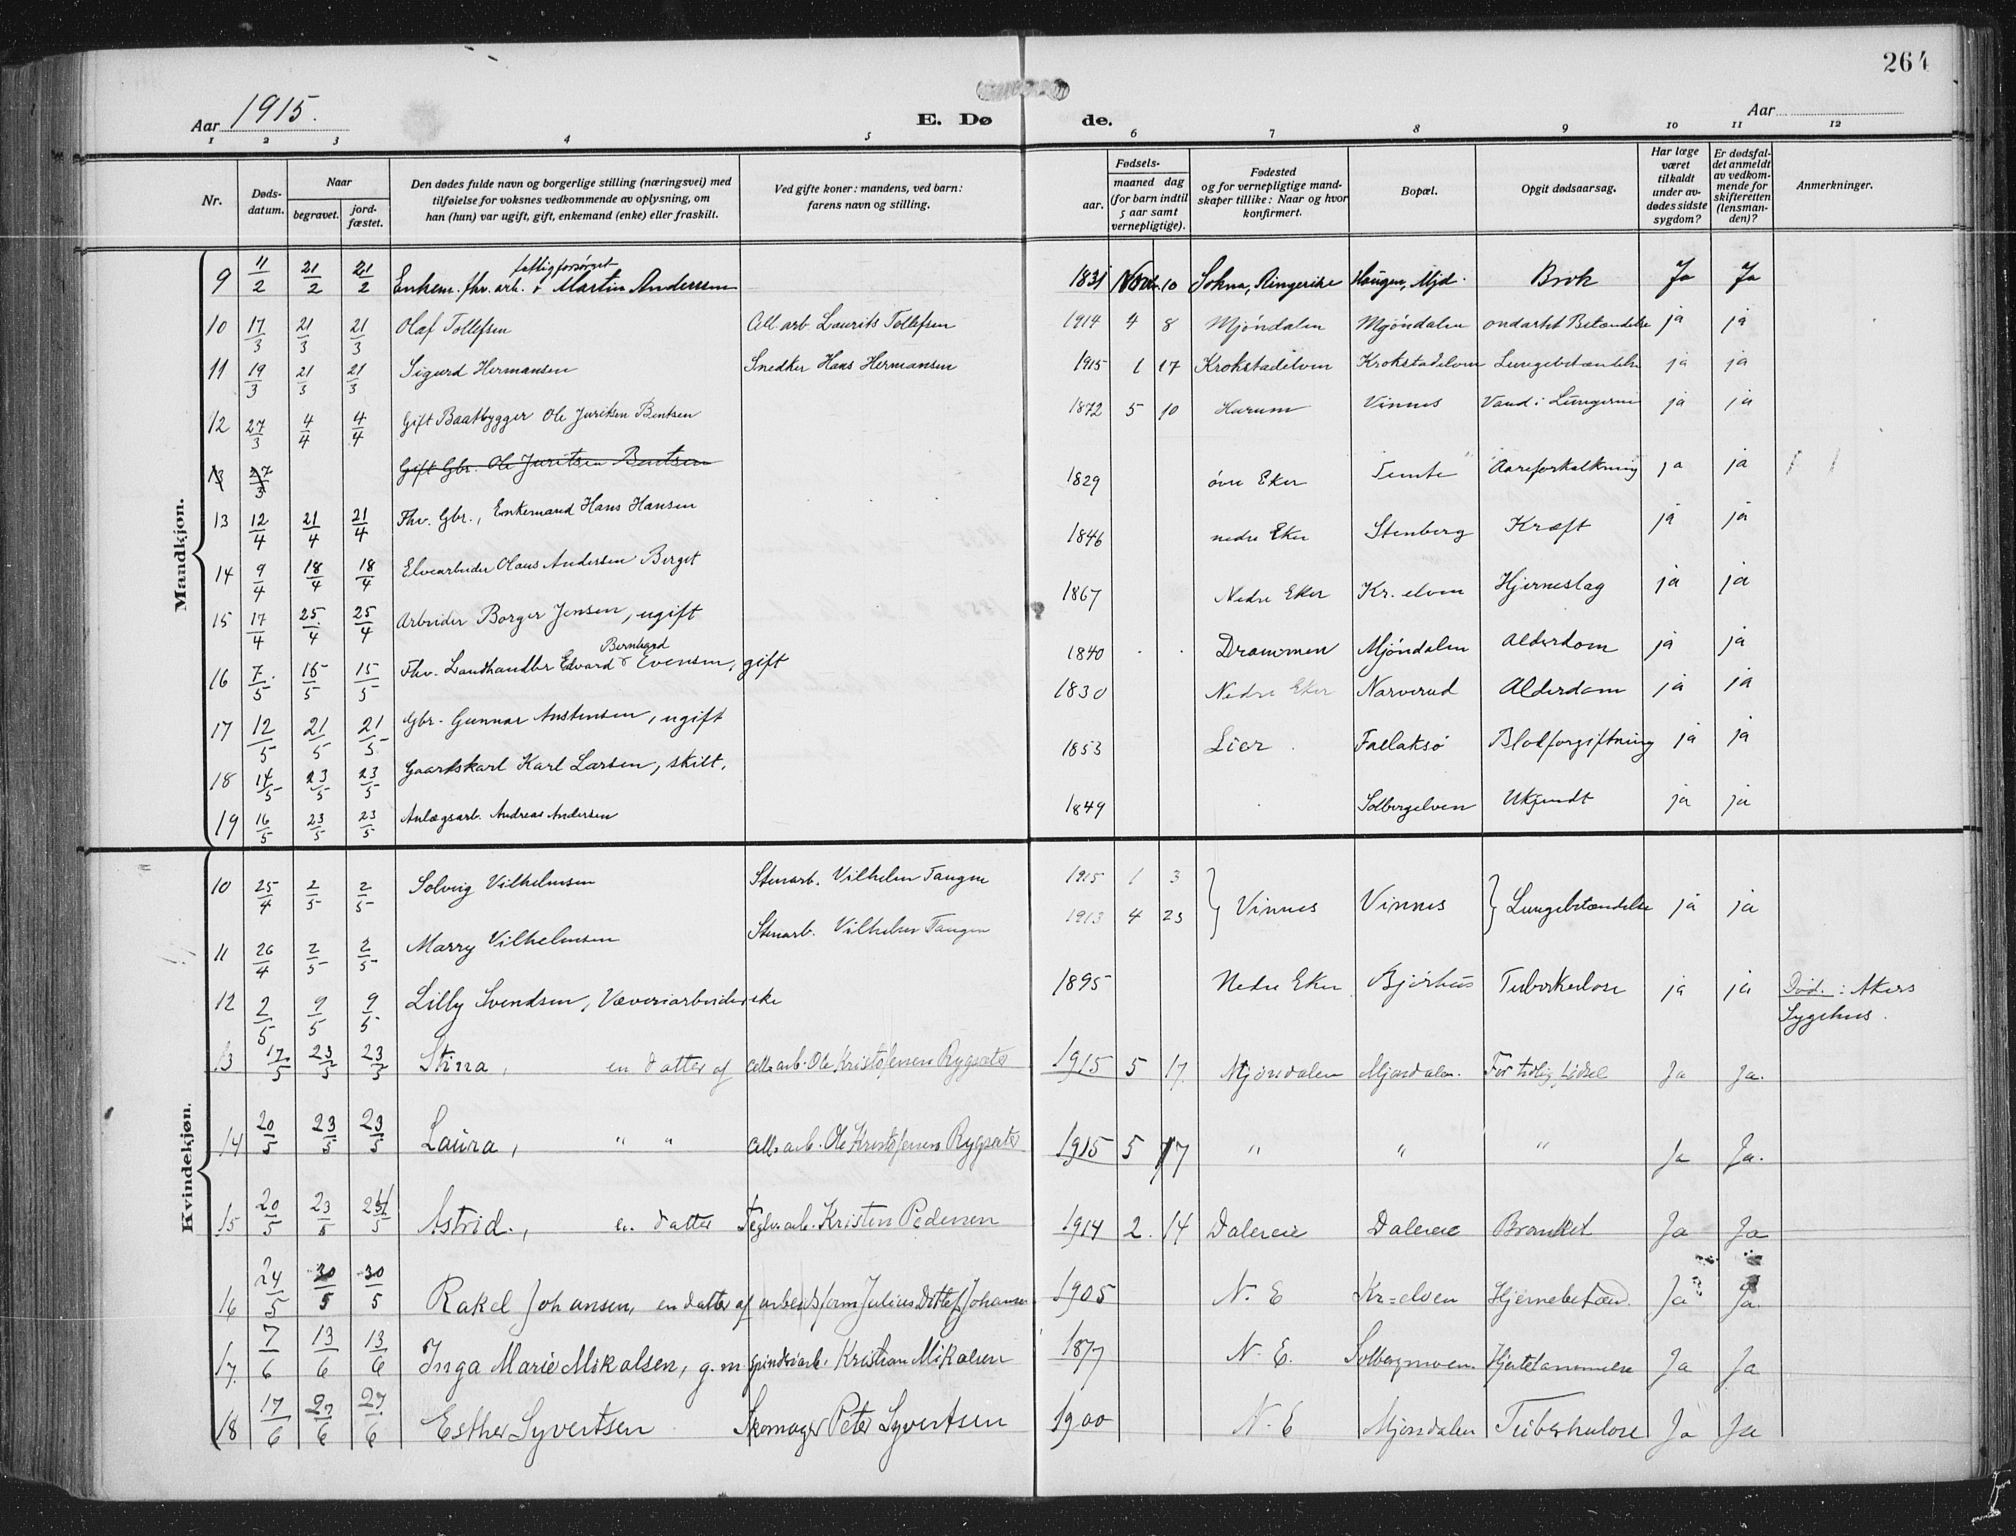 264
Aar 1915.
E. Dø de.
Aar
1 2 3 4 5 6 7 8 9 10 11 12
Nr. Døds-datum. Naar begravet. jord-fæstet. Den dødes fulde navn og borgerlige stilling (næringsvei) med tilføielse for voksnes vedkommende av oplysning, om han (hun) var ugift, gift, enkemand (enke) eller fraskilt. Ved gifte koner: mandens, ved barn: farens navn og stilling. Fødsels- aar. maaned dag (for barn indtil 5 aar samt vernepligtige). Fødested og for vernepligtige mandskaper tillike: Naar og hvor konfirmert. Bopæl. Opgit dødsaarsag. Har læge været tilkaldt under avdødes sidste sygdom? Er dødsfaldet anmeldt av vedkommende for skifteretten (lensmanden)? Anmerkninger.
Mandkjøn.
9 11/2 21/2 21/2 Enkem. fhv. arb. fattigforsørget Martin Andersen 1831 Novbr. 10 Sokna, Ringerike Haugen, Mjd. Brok Ja Ja
10 17/3 21/3 21/3 Olaf Tollefsen Cell arb. Laurits Tollefsen 1914 4 8 Mjöndalen Mjöndalen ondartet Betændelse ja ja
11 19/3 21/3 21/3 Sigurd Hermansen Snedker Hans Hermansen 1915 1 17 Krokstadelven Krokstadelven Lungebetændelse ja ja
12 27/3 4/4 4/4 Gift Baatbygger Ole Juritsen Bentsen 1872 5 10 Hurum Vinnes Vand i Lungerne ja ja
13 27/3 Gift Gbr. Ole Juritsen Bentsen
13 12/4 21/4 21/4 Fhv. Gbr., Enkemand Hans Hansen 1829 øvre Eker Temte Aareforkalkning ja ja
14 9/4 18/4 18/4 Elvearbeider Olaus Andersen Berget 1846 nedre Eker Stenberg Kræft ja ja
15 17/4 25/4 25/4 Arbeider Borger Jensen, ugift 1867 Nedre Eker Kr. elven Hjerneslag ja ja
16 7/5 15/5 15/5 Fhv. Landhandler Edvard Bernhard Evensen, gift 1840 Drammen Mjöndalen Alderdom ja ja
17 12/5 21/5 21/5 Gbr. Gunnar Anstensen, ugift 1830 Nedre Eker Narverud Alderdom ja ja
18 14/5 23/5 23/5 Gaardskarl Karl Larsen, skilt. 1853 Lier Fallaksö Blodforgiftning ja ja
19 16/5 23/5 23/5 Anlægsarb. Andreas Andersen 1849 Solbergelven Ukjendt ja ja
Kvindekjøn.
10 25/4 2/5 2/5 Solveig Vilhelmsen Stenarb. Vilhelm Tangen 1915 1 3 Vinnes Vinnes Lungebetændelse ja ja
11 26/4 2/5 2/5 Marry Vilhelmsen Stenarb. Vilhelm Tangen 1913 4 23
12 2/5 9/5 9/5 Lilly Svendsen, Væveriarbeiderske 1895 Nedre Eker Bjørhus Tuberkulose ja ja Död i Akers Sygehus.
13 17/5 23/5 23/5 Stina, en datter af cell. arb. Ole Kristofersen Rygsæter 1915 5 17. Mjöndalen Mjöndalen. For tidlig födsel Ja Ja.
14 20/5 23/5 23/5 Laura, " " cell. arb. Ole Kristofersen Rygsæter 1915 5 17 " " " Ja Ja.
15 20/5 23/5 5 Astrid., en datter Teglv. arb. Kristen Pedersen 1914 2. 14 Dalereie Dalereie Bronkit Ja Ja
16 24/5 30/5 30/5 Rakel Johansen, en datter af arbeidsform. Julius Detlef Johansen 1905 N. E Kr=elven Hjernebetænd. Ja Ja
17. 7/6 13/6 13/6 Inga Marie Mikalsen, g. m. Kristian Mikalsen 1877 N. E. Solbergmoen. Hjertelammelse Ja Ja
18 17/6 27/6 27/6 Esther Syvertsen Skomager Peter Syvertsen 1900 N. E Mjöndalen Tuberkulose Ja Ja